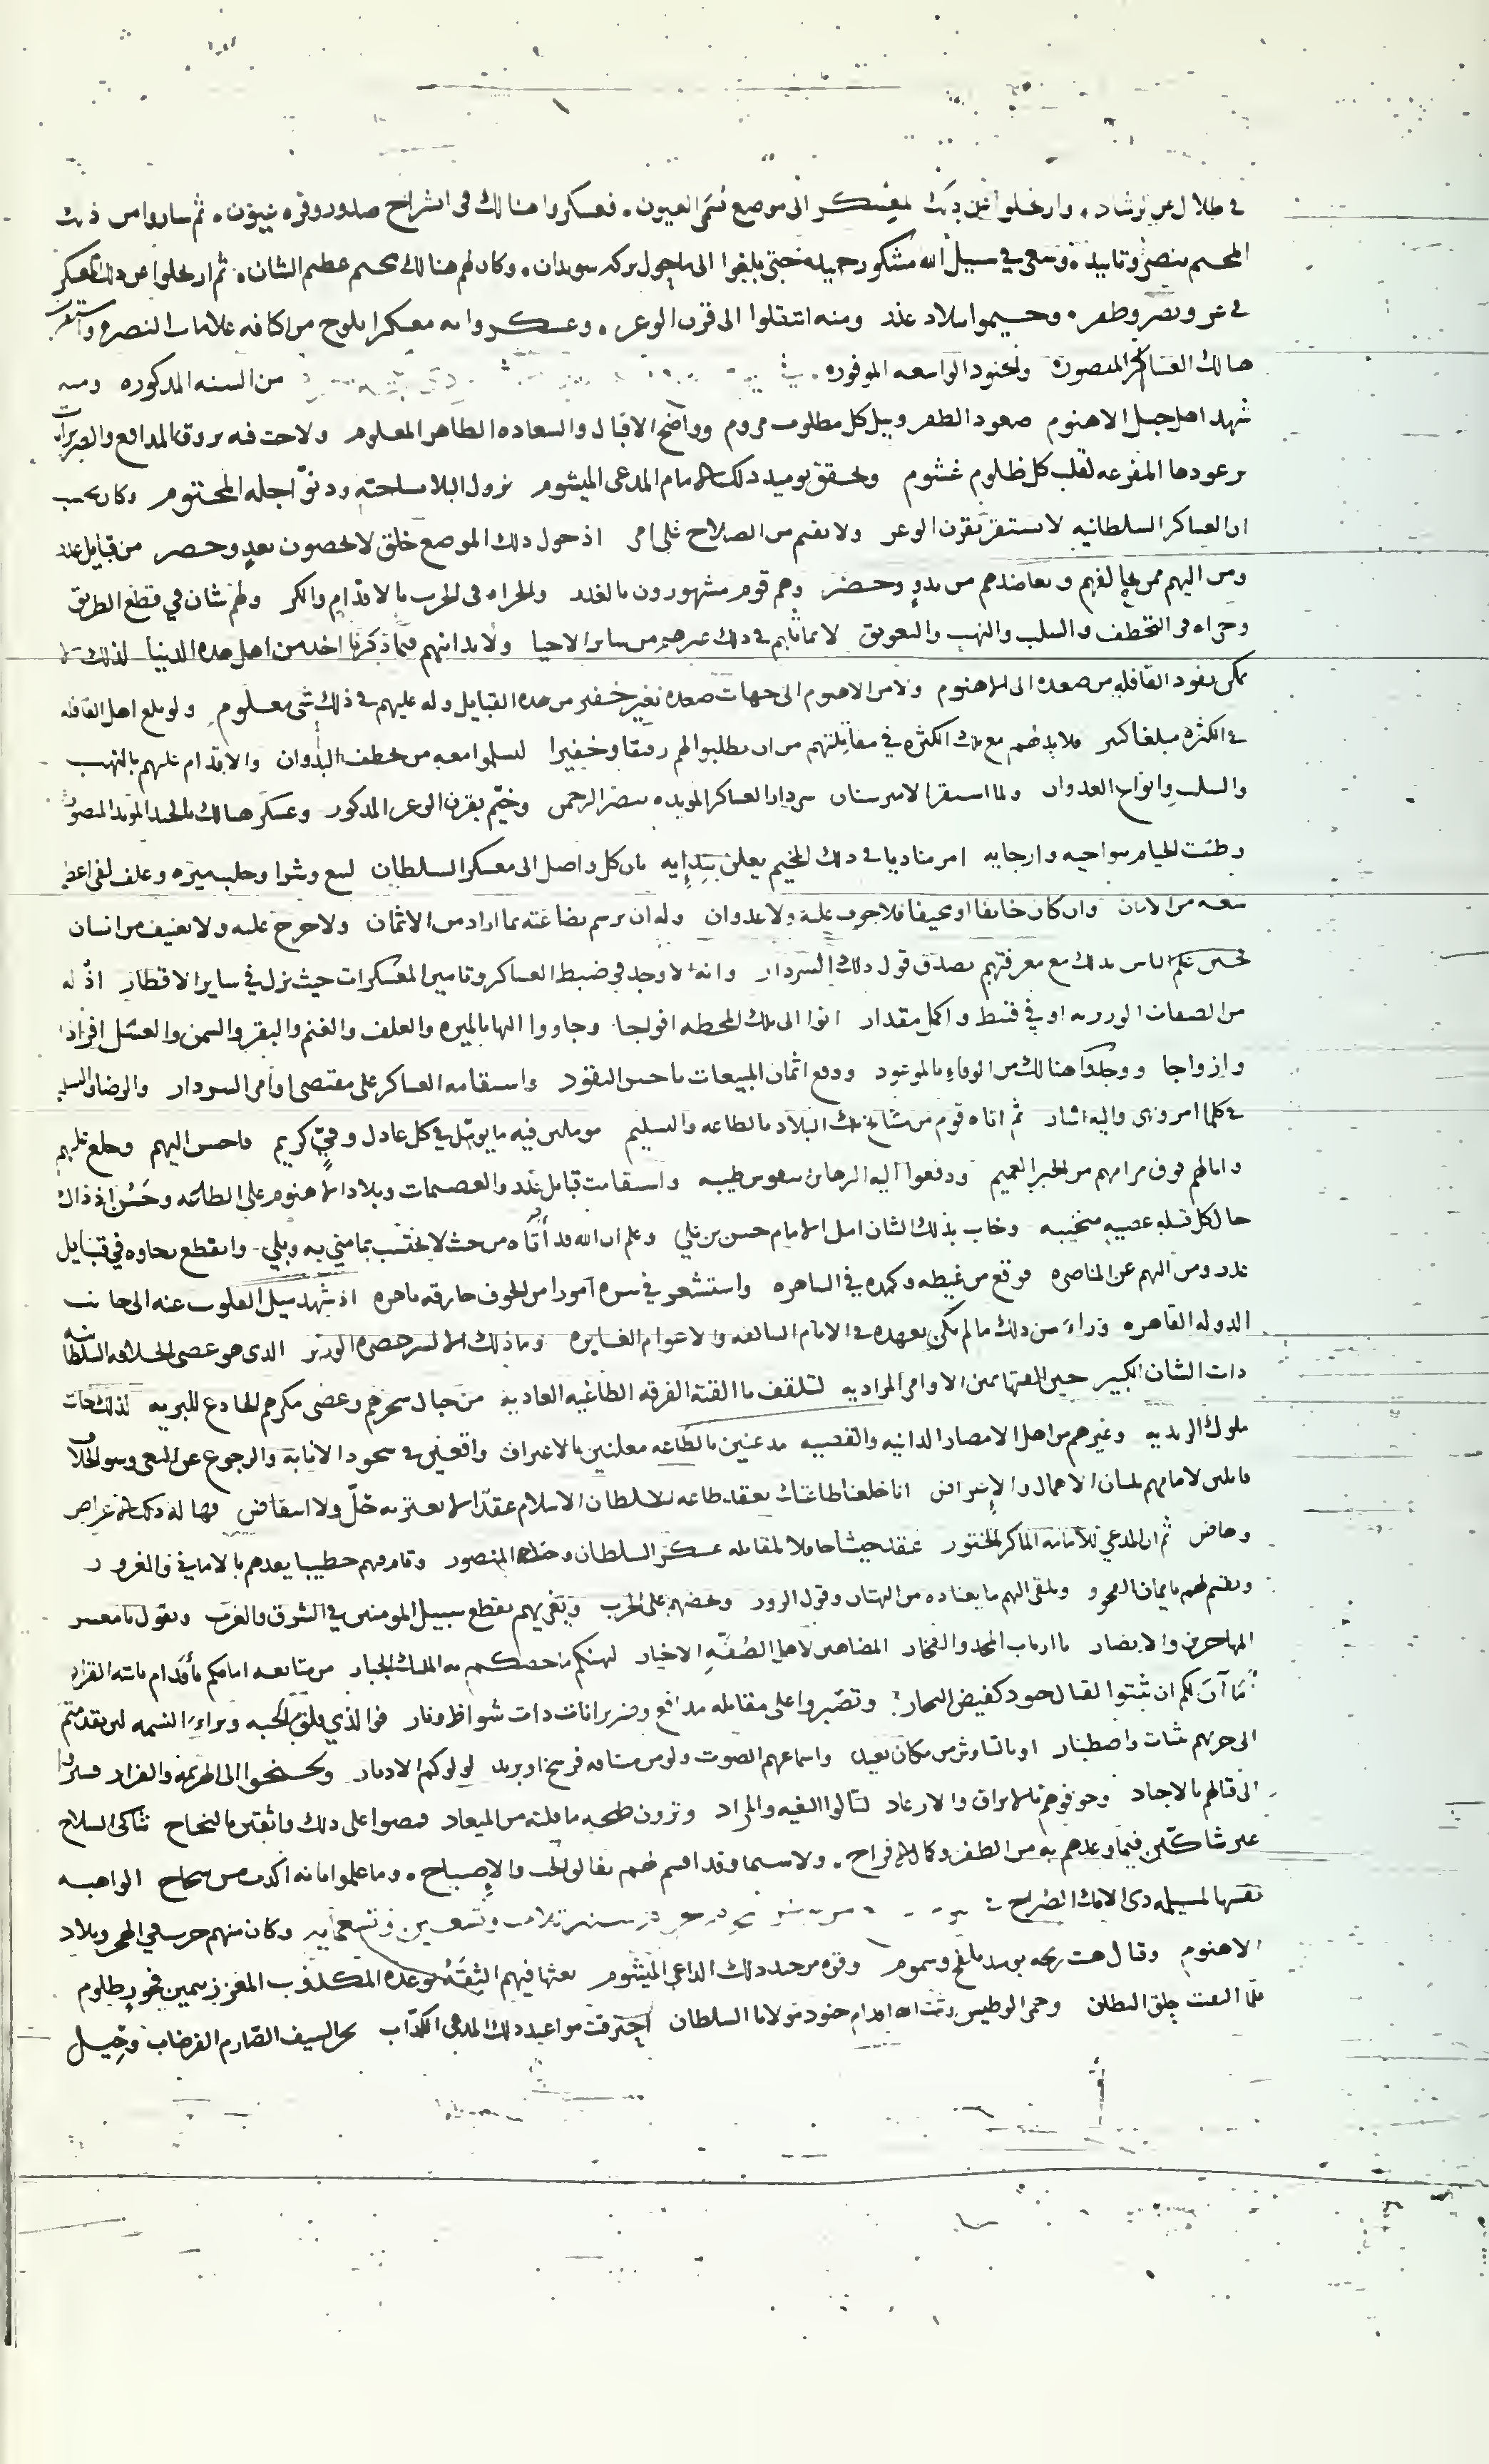 في ظلال عن الرشاد، وارتحلوا عن ذلك المعسكر الى موضع تسمى العيون، فعسكروا هنالك في انشراح صدور وقره عيون، ثم ساروا من ذلك
المخيم بنصر وتاييد، وسعي في سبيل الله مشكور حتى بلغوا الى بركه سويدان، وكان لهم هنالك مخيم عظيم الشان، ثم ارتحلوا عن ذلك المعسكر
في عز ونصر وظفر، وخيموا ببلاد عذر ومنه انتقلوا الى قرن الوعر، وعسكروا به معسكرا يلوح من اكنافه علامات النصر واستقرت
هنالك العساكر المنصوره والجنود الواسعه الموفوره من السنه المذكوره ومنه
شهد اهل جبل الاهنوم صعود الظفر ونيل كل مطلوب مروم وواضح الاقبال والسعاده الظاهر المعلوم ولاحت فيه بروق المدافع والضربزانات
برعودها المفزعه لقلب كل ظلوم غشوم وتحقق يوميد ذلك الامام المدعي الميشوم نزول البلا بساحته ودنو اجله المحتوم وكان يحسب
ان العساكر السلطانيه لا تستقر بقرن الوعر ولا تقيم من الصلاح على امر اذ حول ذلك الموضع خلق لا يحصون بعد وحصر من قبايل عذر
ومن اليهم ممن يحالفهم ويعاضدهم من بدو وحضر وهم قوم مشهورون بالغدر والجراه في الحرب بالاقدام والكر ولهم شان في قطع الطريق
وجراه في التخطف والسلب والنهب والتعويق لا يماثلهم في ذلك غيرهم من ساير الاحيا ولا يدانيهم فيما ذكرنا احد من اهل هذه الدنيا لذلك لا
يمكن نفود القافله من صعده الى الاهنوم ولا من الاهنوم الى جهات صعده بغير خفير من هذه القبايل وله عليهم في ذلك شي معلوم ولو بلغ اهل القافله
في الكثره مبلغا كبير فلا بد لهم مع تلك الكثره في مقابلتهم من ان يطلبوا لهم رفيقا وخفيرا ليسلموا معه من تخطف البدوان والاقدام عليهم بالنهب
والسلب وانواع العدوان ولما استقر الامير سنان سردار العساكر المويده بنصر الرحمن وخيم بقرن الوعر المذكور وعسكر هنالك بالجند المويد المنصور
وطنبت الخيام بنواحيه وارجايه امر مناديا في ذلك المخيم يعلن بندايه بان كل واصل الى معسكر السلطان لبيع وشرا وجلب ميره وعلف لفي اعظم
سعه من الامان وان كان خايفا او مخيفا فلا خوف عليه ولا عدوان وله ان يرسم بضاعته بما اراد من الاثمان ولا حرج عليه ولا تعنيف من انسان
فحين علم الناس بذلك مع معرفتهم بصدق قول ذلك السردار وانه الاوحد في ضبط العساكر وتامين المعسكرات حيث نزل في ساير الاقطار اذ له
من الصفات اوفى قسط واكمل مقدار اتوا الى تلك المحطه افواجا وجاووا اليها بالميره والعلف والغنم والبقر والسمن والعسل افرادا
وازواجا ووجدوا هنالك من الوفاء بالموعود ودفع اثمان المبيعات باحسن النقود واستقامه العساكر على مقتضى اوامر السردار والرضا والتسليم
في كلما امر ونهى واليه اشار ثم اتاه قوم من مشايخ تلك البلاد بالطاعه والتسليم موملين فيه ما يومل في كل عادل وفيّ كريم فاحسن اليهم وخلع عليهم
وانالهم فوق مرامهم من الخير العميم ودفعوا اليه الرهاين بنفوس طيبه واستقامت قبايل عذر والعصيمات وبلاد الاهنوم على الطاعه وحسن اذ ذاك
حال كل قبيله عصيه متحببه وخاب بذلك الشان امل الامام حسن بن علي وعلم ان الله قد اتاه من حيث لا يحتسب بما مني به وبلي وانقطع رجاوه في قبايل
عذر ومن اليهم عن المناصره فوقع من غيظه وكمده في الساهره واستشعر في سره امورا من الخوف خارقه باهره اذ شهد ميل القلوب عنه الى جانب
الدوله القاهره وراى من ذلك ما لم يكن يعهده في الايام السالفه والاعوام الغابره وما ذلك الا لسر حضره الوزير الذي هو عصى الخلافه السلطانيه
ذات الشان الكبير حين القتها يمين الاوامر المراديه لتلقف ما القته الفرقه الطاغيه العاديه من حبال سحرهم وعصى مكرهم الخادع للبريه لذلك جات
ملوك الزيديه وغيرهم من اهل الامصار الدانيه والقصيه مذعنين بالطاعه معلنين بالاعتراف واقعين في سجود الانابه والرجوع عن البغي وسو الخلاف
قايلين لامامهم بلسان الاهمال والاعراض انا خلعنا طاعتك بعقد طاعه السلطان الاسلام عقدا لا يعتريه حل ولا انتقاض
ثم ان المدعي للامامه الماكر الختور عقد جيشا حافلا لمقابله عسكر السلطان وجنده المنصور وقام فيهم خطيبا يعدهم بالاماني والغرور
ويقسم لهم بايمان الفجور ويلقي اليهم ما يعتاده من البهتان وقول الزور ويحضهم على الحرب ويغريهم بقطع سبيل المومنين في الشرق والغرب ويقول يا معشر
المهاجرين والانصار يا ارباب المجد والفخار المضاهين لاهل الصُفّه الاخيار ليهنكم ما خصكم به الملك الجبار من متابعه امامكم
اما آن لكم ان تثبتوا لقتال جنود كفيض البحار وتصبروا على مقابله مدافع وضربزانات ذات شواظ ونار فوالذي فلق الحبه وبراء النسمه لين تقدمتم
الى حربهم بثبات واصطبار او بالتناوش من مكان بعيد واسماعهم الصوت ولو من مسافه فرسخ او بريد ليولوكم الادبار ويجنحوا الى الهزيمه والفرار فسيروا
الى قتالهم بالاجناد وخوفوهم بالابراق والارعاد لتنالوا البغيه والمراد وترون صحه ما قلته من الميعاد فمضوا على ذلك واثقين بالنجاح شاكي السلاح
غير شاكين فيما وعدهم به من الظفر وكمال الافراح، ولا سيما وقد اقسم لهم بفالق الحب والاصباح، وما علموا بانه اكذب من سجاح الواهبه
نفسها لمسيلمه ذي الافك الصراح وتسعين وتسعمايه وكان منهم حرب في الهجر وبلاد
الاهنوم وقتال هبت ريحه وسموم وقوه من جند ذلك الداعي الميشوم بعثها فيهم الثقه بوعده المكذوب المعزز بيمين فجور ظلوم
فلما التقت حلق البطان وحمى الوطيس وثبت الله اقدام جنود مولانا السلطان احترقت مواعيد ذلك المدعي الكذاب بحر السيف الصارم القرضاب وحيل